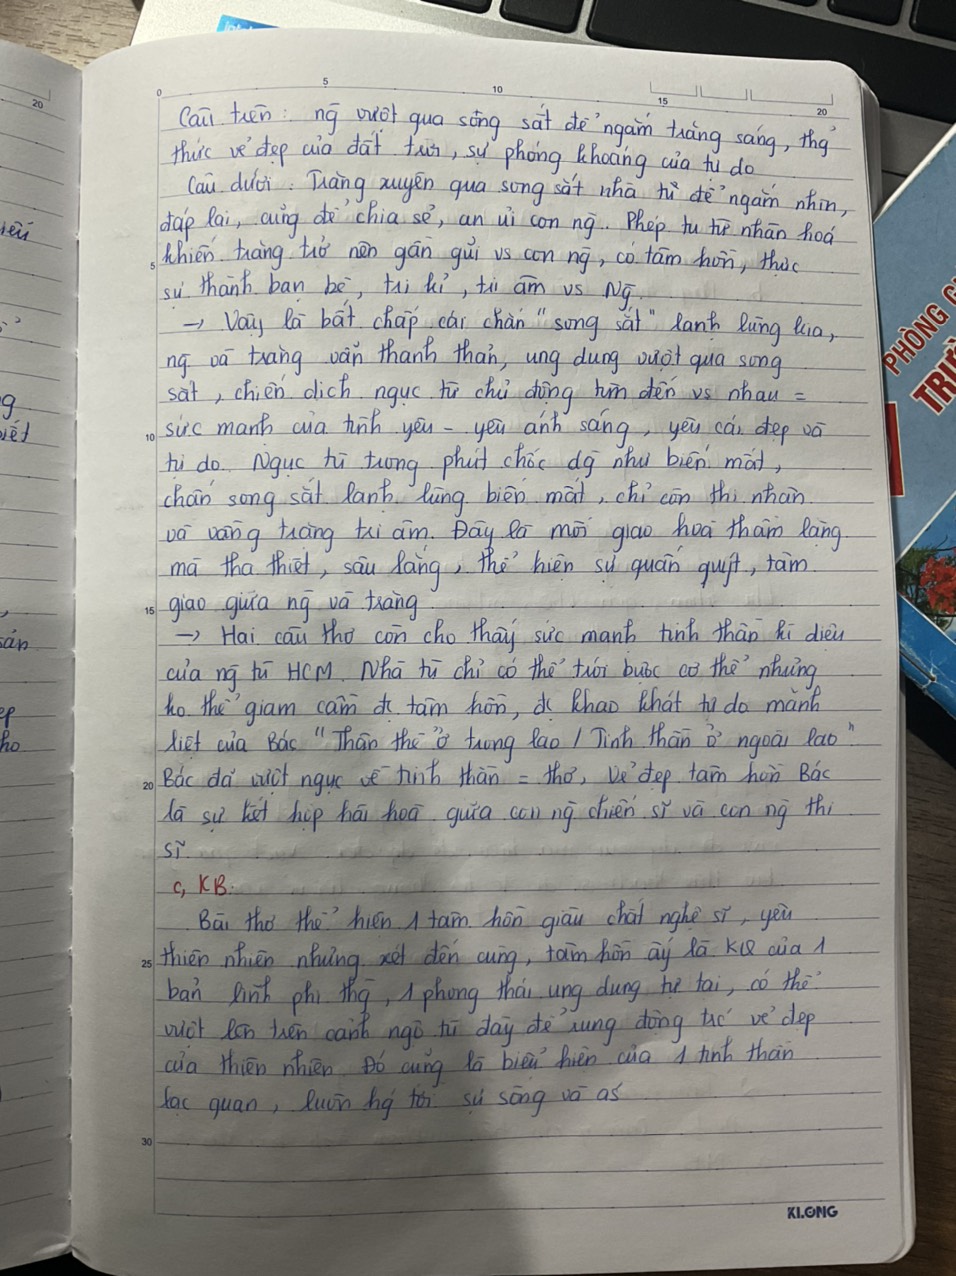 0 5 10 15 20
20
Câu trên: ng̃ vượt qua song sắt để ngắm trăng sáng, thg̉
thức vẻ đẹp của đất trời, sự phóng khoáng của tự do
Câu dưới: Trăng xuyên qua song sắt nhà tù để ngắm nhìn,
đáp lại, cũng để chia sẻ, an ủi con ng̃. Phép tu từ nhân hoá
5 khiến trăng trở nên gần gũi vs con ng̃, có tâm hồn, thực
sự thành bạn bè, tri kỉ, tri âm vs Ng̃.
→ Vậy là bất chấp các chắn "song sắt" lạnh lùng kia,
ng̃ và trăng vẫn thanh thản, ung dung vượt qua song
sắt, chiến dịch ngục tù chủ động tìm đến vs nhau =
10 sức mạnh của tình yêu - yêu ánh sáng, yêu cái đẹp và
tự do. Ngục tù trong phút chốc dg̃ như biến mất,
chấn song sắt lạnh lùng biến mất, chỉ còn thi nhân
và vầng trăng tri âm. Đây là mối giao hoà thầm lặng
mà tha thiết, sâu lắng, thể hiện sự quấn quýt, tâm
15 giao giữa ng̃ và trăng
→ Hai câu thơ còn cho thấy sức mạnh tinh thần kì diệu
của ng̃ tù HCM. Nhà tù chỉ có thể trói buộc cơ thể nhưng
ko thể giam cầm đc tâm hồn, đc khao khát tự do mãnh
liệt của Bác "Thân thể ở trong lao / Tinh thần ở ngoài lao"
20 Bác đã vượt ngục về tinh thần = thơ, vẻ đẹp tâm hồn Bác
là sự kết hợp hài hoà giữa con ng̃ chiến sĩ và con ng̃ thi
sĩ.
c, KB:
Bài thơ thể hiện 1 tâm hồn giàu chất nghệ sĩ, yêu
25 thiên nhiên nhưng xét đến cùng, tâm hồn ấy là KQ của 1
bản lĩnh phi thg̀, 1 phong thái ung dung tự tại, có thể
vượt lên trên cảnh ngộ tù đày để rung động trc vẻ đẹp
của thiên nhiên Đó cũng là biểu hiện của 1 tinh thần
lạc quan, luôn hg tới sự sống và as
30
KLONG
PHÒNG
TRƯỜ